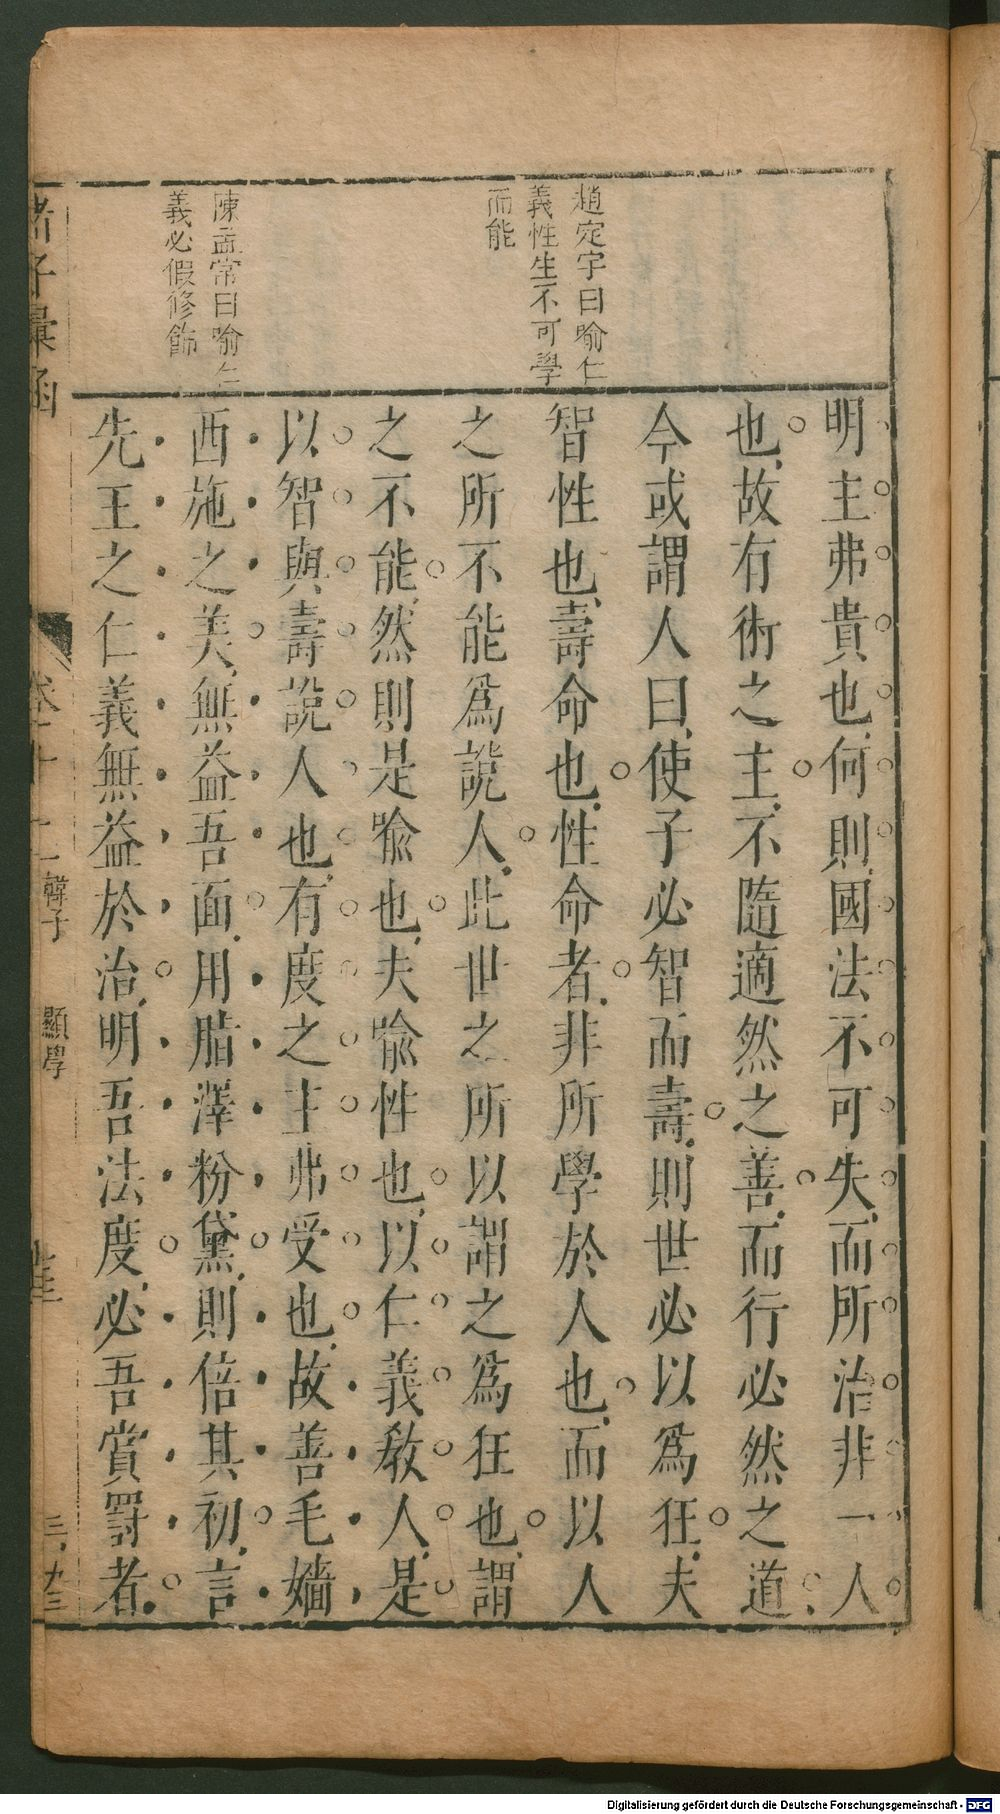 趙定宇曰喻仁
義性生不可學
而能
陳孟常曰喻仁
義必假修飾
明主弗貴也何則國法不可失而所治非一人
也故有術之主不隨適然之善而行必然之道
今或謂人曰使子必智而壽則世必以爲狂夫
智性也壽命也性命者非所學於人也而以人
之所不能爲說人此世之所以謂之爲狂也謂
之不能然則是喻也夫喻性也以仁義敎人是
以智與壽說人也有度之主弗受也故善毛嬙
西施之美無益吾面用脂澤粉黛則倍其初言
先王之仁義無益於治明吾法度必吾賞罸者
諸子彙函
韓子 顯學
Digitalisierung gefördert durch die Deutsche Forschungsgemeinschaft - DFG